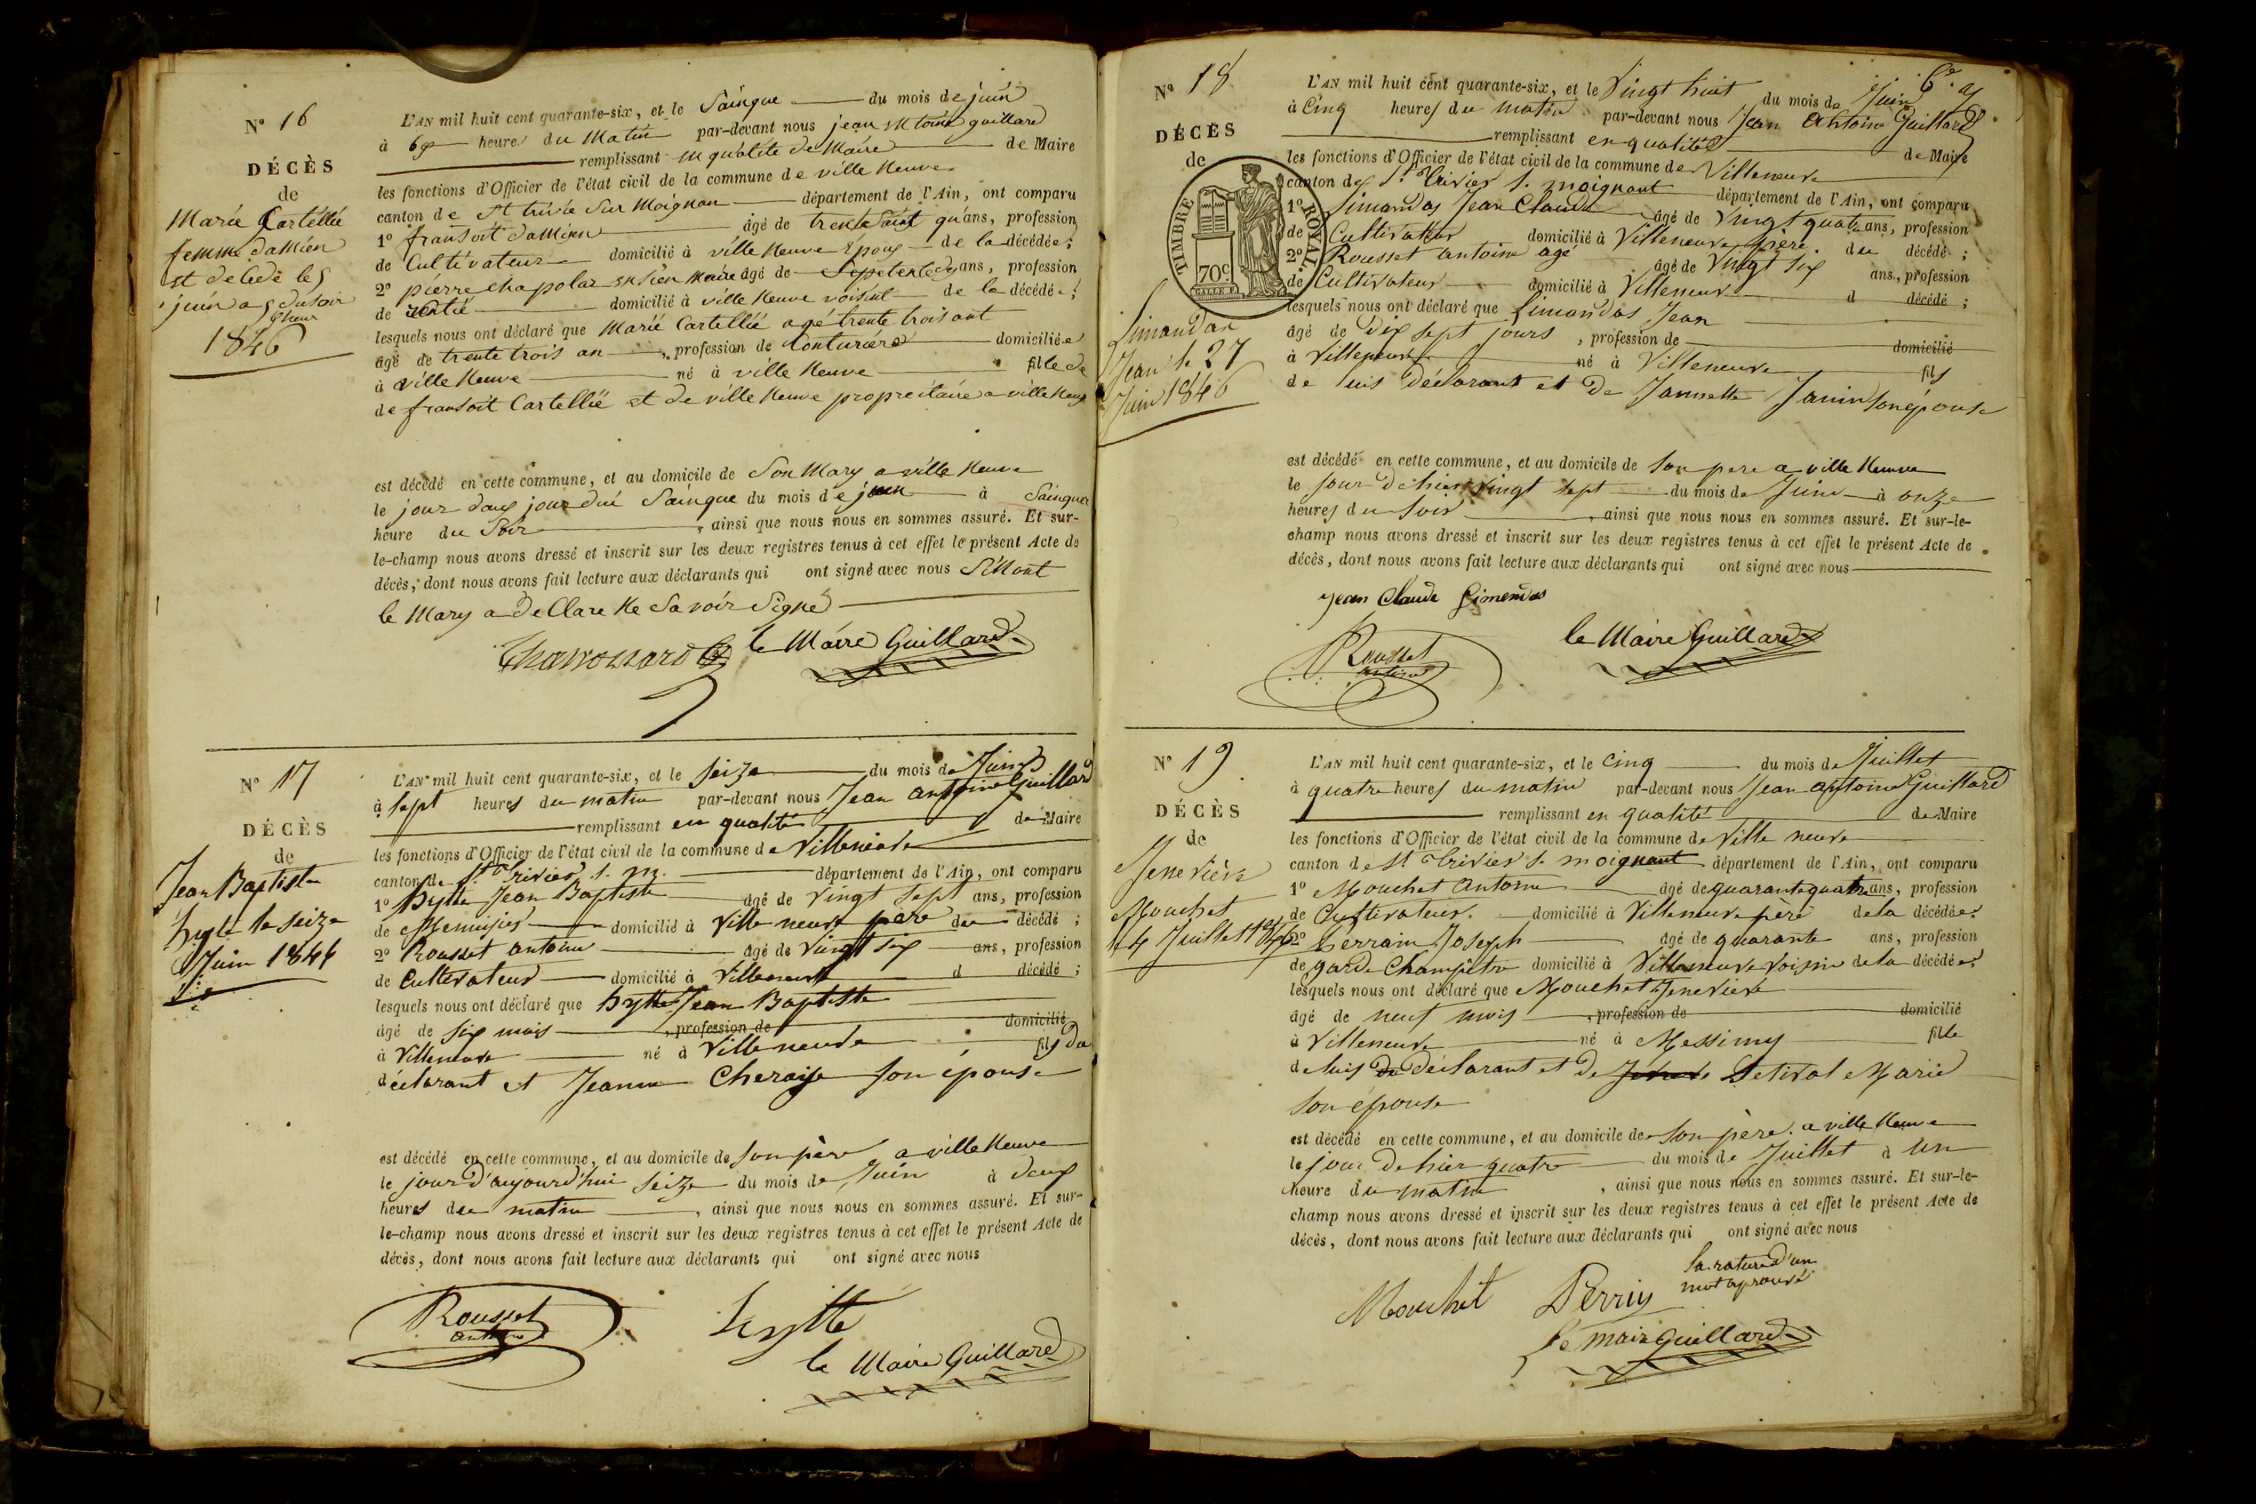 N° 16
DÉCÈS
de
Marie Cartellié
femme damien
est decede le 5
juin a 5 du soir
heur
1846
L'AN mil huit cent quarante-six, et le Sainque du mois de juin
à 6 heure du Matin par-devant nous jean Antoine guillard
remplissant en qualité de Maire de Maire
les fonctions d'Officier de l'état civil de la commune de ville Neuve
canton de St trivié Sur Moignan département de l'Ain, ont comparu
1° fransoit damien âgé de trente ans, profession
de Cultivateur domicilié à ville Neuve Epoux de la décédée;
2° pierre chapolar ensien Maire âgé de ans, profession
de rentié domicilié à ville Neuve voisint de la décédée;
lesquels nous ont déclaré que Marié Cartellié agé trente troisant
âgé de trente trois an, profession de Couturière domiciliée
à ville Neuve né à ville Neuve fille de
de fransoit Cartellié et de ville Neuve propreitaire a ville Neuve
est décédé en cette commune, et au domicile de Son Mary a ville Neuve
le jour daujourdui Sainque du mois de juin à Sainque
heure du Soir, ainsi que nous nous en sommes assuré. Et sur-
le-champ nous avons dressé et inscrit sur les deux registres tenus à cet effet le présent Acte de
décès, dont nous avons fait lecture aux déclarants qui ont signé avec nous
le Mary a deClare Ne Savoir Signé
le Maire Guillard
N° 17
DÉCÈS
de
Jean Baptiste
hytte le seize
Juin 1846
L'AN mil huit cent quarante-six, et le seize du mois de Juin
à sept heures du matin par-devant nous Jean antoine Guillard
remplissant en qualité de Maire
les fonctions d'Officier de l'état civil de la commune de Villeneuve
canton de St Trivier s. m. département de l'Ain, ont comparu
1° hytte Jean Baptiste âgé de vingt sept ans, profession
de Menuisier domicilié à Ville neuve père du décédé;
2° Rousset antoine âgé de vingt six ans, profession
de Cultivateur domicilié à Villeneuve d décédé;
lesquels nous ont déclaré que hytte Jean Baptiste
âgé de six mois, profession de domicilié
à Villeneuve né à Ville neuve fils du
déclarant et Jeanne Cheraise son épouse
est décédé en cette commune, et au domicile de son père a ville Neuve
le jour d'aujourd'hui seize du mois de Juin à deux
heures du matin, ainsi que nous nous en sommes assuré. Et sur-
le-champ nous avons dressé et inscrit sur les deux registres tenus à cet effet le présent Acte de
décès, dont nous avons fait lecture aux déclarants qui ont signé avec nous
Rousset
antoine
hytte
le Maire Guillard
N° 18
DÉCÈS
de
TIMBRE ROYAL
70c
Limandas
Jean le 27
Juin 1846
L'AN mil huit cent quarante-six, et le Vingt huit du mois de Juin
à Cinq heures du matin par-devant nous Jean Antoine Guillard
remplissant en qualité de Maire
les fonctions d'Officier de l'état civil de la commune de Villeneuve
canton de St Trivier s. moignant département de l'Ain, ont comparu
1° Limandas Jean Claude âgé de Vingt quatre ans, profession
de Cultivateur domicilié à Villeneuve père du décédé;
2° Rousset antoine agé âgé de Vingt six ans, profession
de Cultivateur domicilié à Villeneuve d décédé;
lesquels nous ont déclaré que Limandas Jean
âgé de Dix sept jours, profession de domicilié
à Villeneuve né à Villeneuve fils
de luis déclarant et de Jannette Janin son épouse
est décédé en cette commune, et au domicile de son pere a ville Neuve
le jour de hier vingt sept du mois de Juin à onze
heures du soir, ainsi que nous nous en sommes assuré. Et sur-le-
champ nous avons dressé et inscrit sur les deux registres tenus à cet effet le présent Acte de
décès, dont nous avons fait lecture aux déclarants qui ont signé avec nous
Jean Claude Limendas
Rousset
antoine
le Maire Guillard
N° 19
DÉCÈS
de
Jenevière
Mouchet
4 Juillet 1846
L'AN mil huit cent quarante-six, et le cinq du mois de Juillet
à quatre heures du matin par-devant nous Jean antoine Guillard
remplissant en qualité de Maire
les fonctions d'Officier de l'état civil de la commune de Ville neuve
canton de St Trivier s. moignant département de l'Ain, ont comparu
1° Mouchet Antoine âgé de quarante quatre ans, profession
de Cultivateur domicilié à Villeneuve père de la décédée;
2° Perrain Joseph âgé de quarante ans, profession
de garde Champêtre domicilié à Villeneuve voisin de la décédée;
lesquels nous ont déclaré que Mouchet Jenevieve
âgé de neuf mois, profession de domicilié
à Villeneuve né à Messimy fille
de luis du déclarant et de Letivol Marie
son epouse
est décédé en cette commune, et au domicile de son père a ville Neuve
le jour de hier quatre du mois de Juillet à un
heure du matin, ainsi que nous nous en sommes assuré. Et sur-le-
champ nous avons dressé et inscrit sur les deux registres tenus à cet effet le présent Acte de
décès, dont nous avons fait lecture aux déclarants qui ont signé avec nous
la rature d'un
mot aprouvé
Mouchet Perrin
le maire Guillard